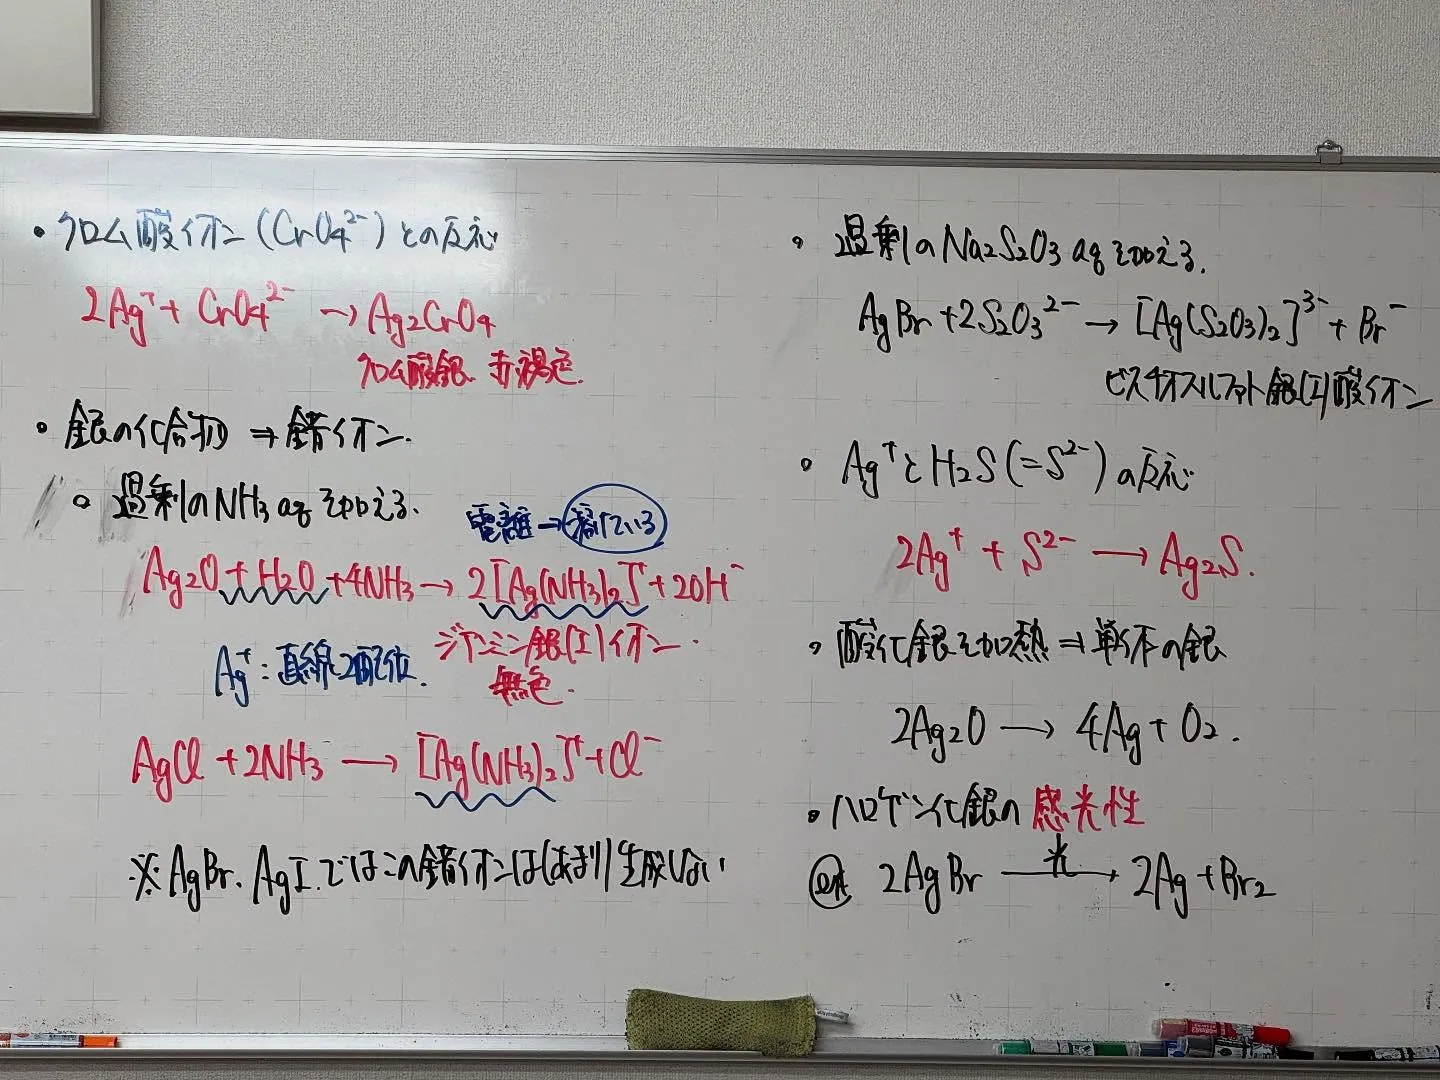 ・クロム酸イオン(CrO4²⁻)との反応
2Ag⁺ + CrO4²⁻ → Ag2CrO4
クロム酸銀 赤褐色.
・銀の化合物 ⇒ 錯イオン.
○ 過剰のNH3 aqを加える.
電離→溶けている
Ag2O + H2O + 4NH3 → 2[Ag(NH3)2]⁺ + 2OH⁻
Ag⁺:直線2配位.
ジアンミン銀(I)イオン.
無色.
AgCl + 2NH3 → [Ag(NH3)2]⁺ + Cl⁻
※AgBr、AgI.ではこの錯イオンは(あまり)生成しない
○ 過剰のNa2S2O3 aqを加える.
AgBr + 2S2O3²⁻ → [Ag(S2O3)2]³⁻ + Br⁻
ビスチオスルファト銀(I)酸イオン
○ Ag⁺とH2S(=S²⁻)の反応
2Ag⁺ + S²⁻ → Ag2S.
・酸化銀を加熱⇒単体の銀
2Ag2O → 4Ag + O2.
・ハロゲン化銀の感光性
ex 2AgBr 光→ 2Ag + Br2